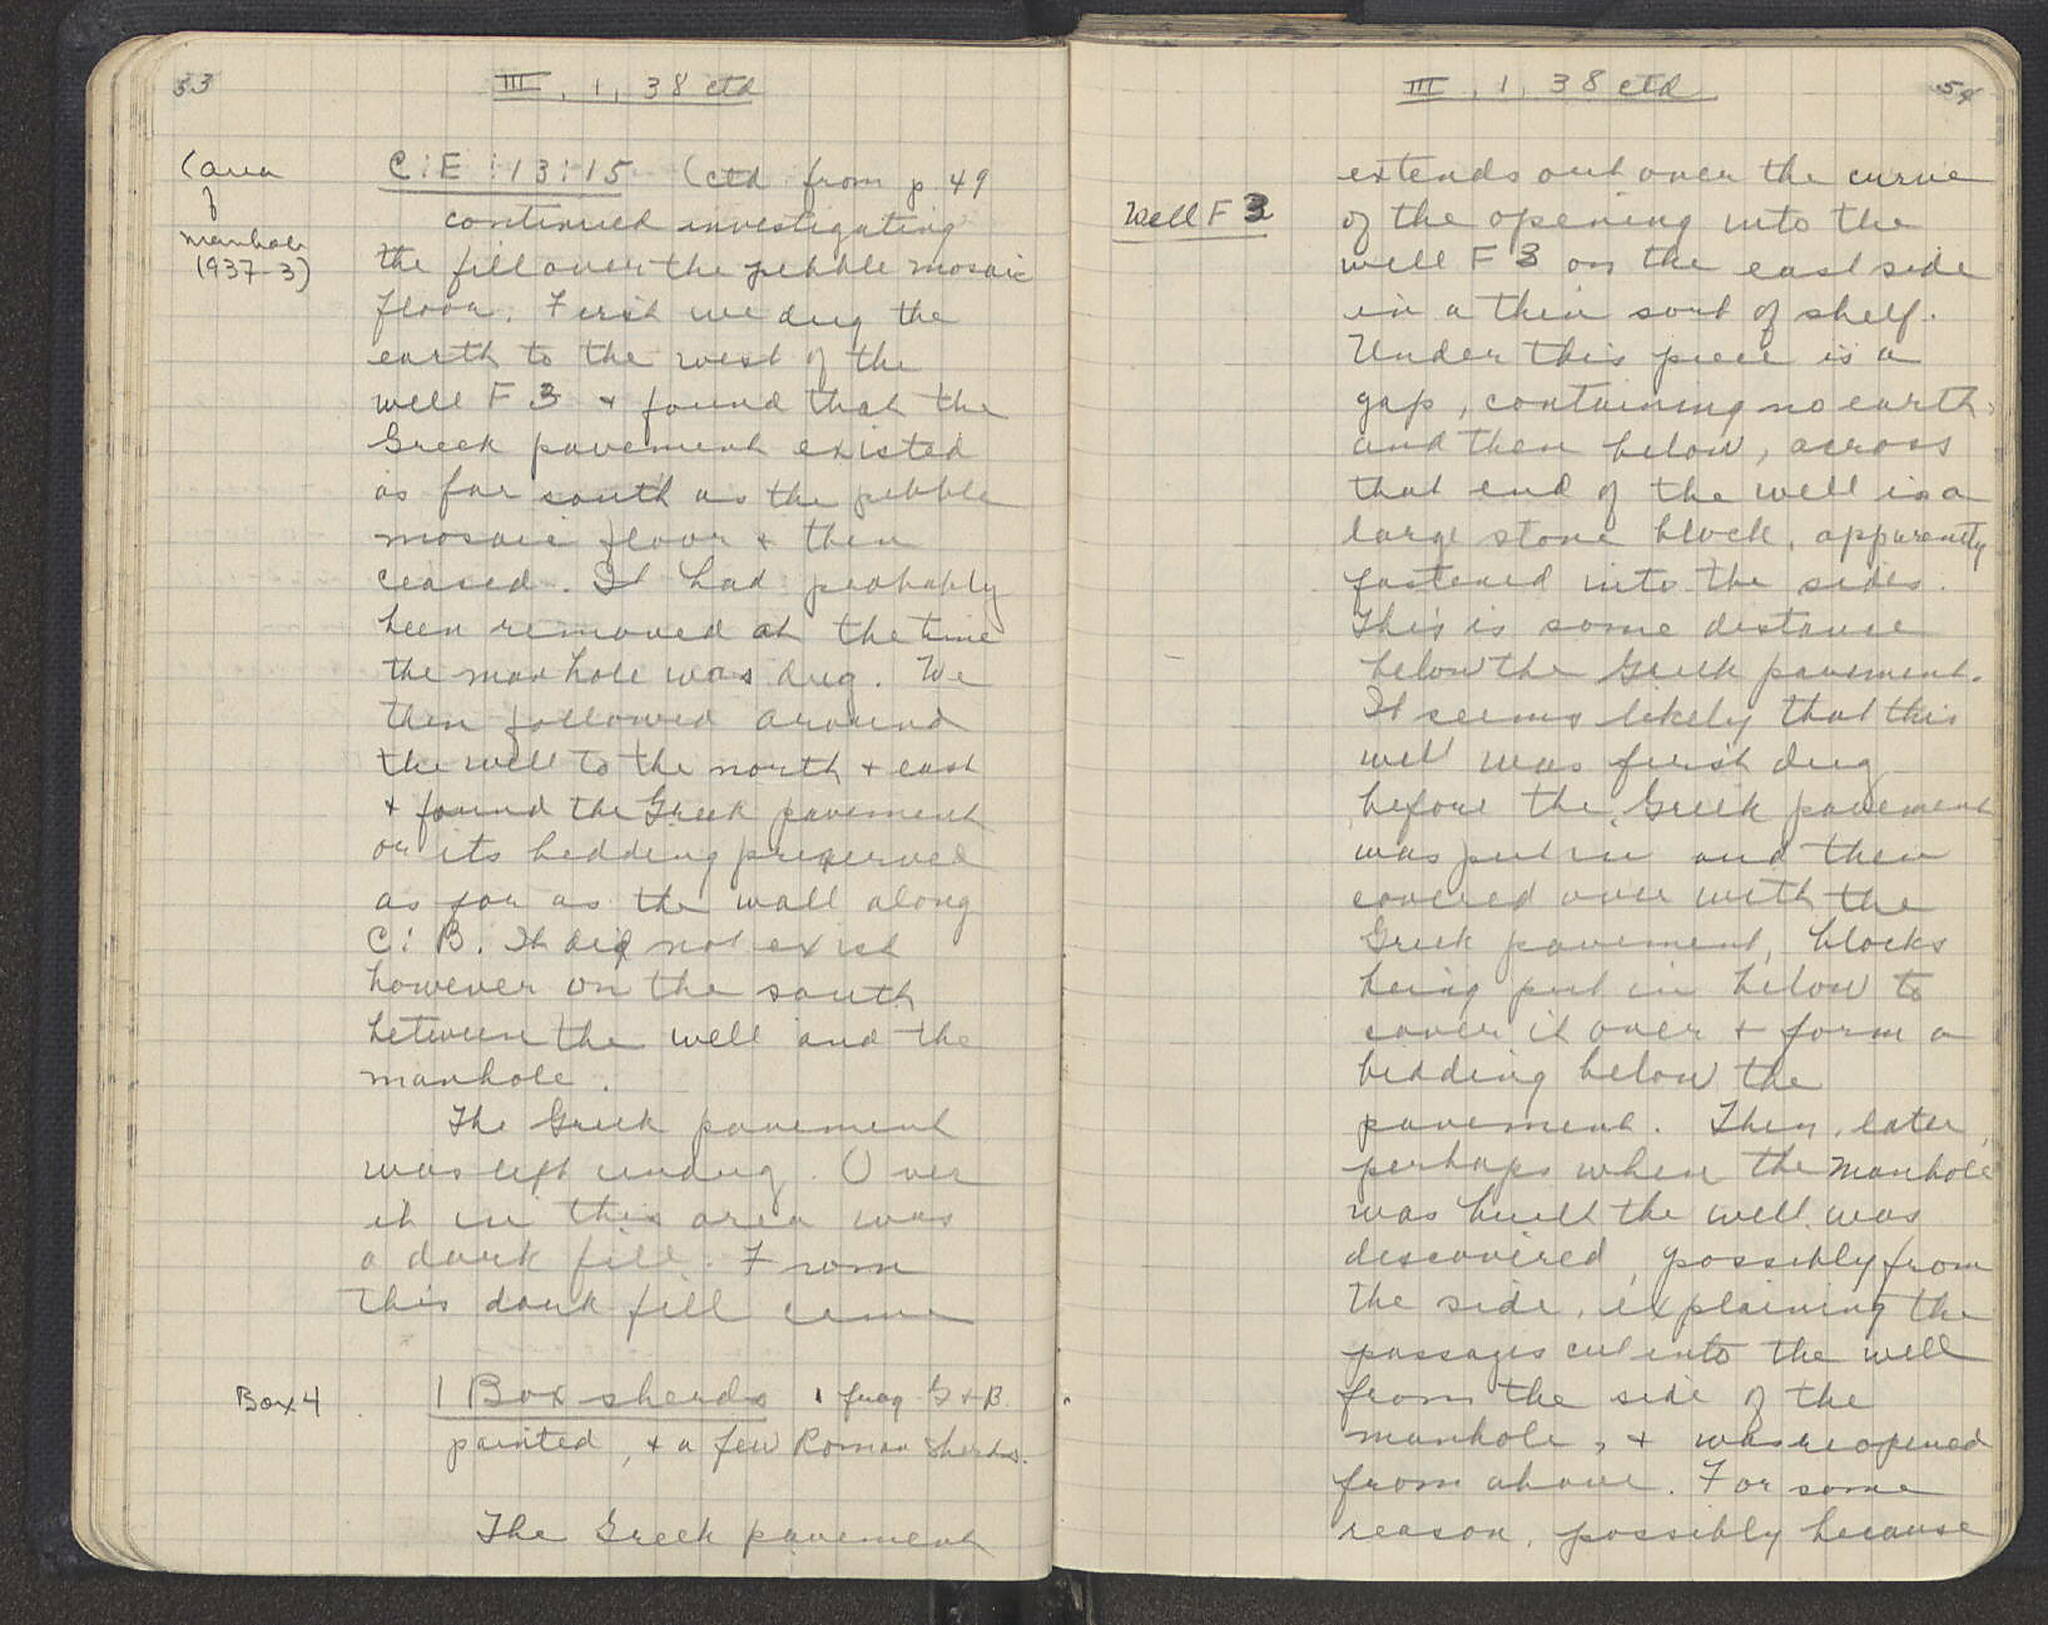 53
III, 1, 38 ctd
(area
of
manhole
1937-3)
C:E:13:15 (ctd from p 49
continued investigating
the fill over the pebble mosaic
floor. First we dug the
earth to the west of the
well F 3 + found that the
Greek pavement existed
as far south as the pebble
mosaic floor + then
ceased. It had probably
been removed at the time
the manhole was dug. We
then followed around
the well to the north + east
+ found the Greek pavement
or its bedding preserved
as far as the wall along
C:B. It did not exist
however on the south
between the well and the
manhole.
The Greek pavement
was left undug. Over
it in this area was
a dark fill. From
this dark fill came
Box 4
1 Box sherds 1 frag G + B
painted, + a few Roman sherds.
The Greek pavement
III, 1, 38 ctd
54
Well F 3
extends out over the curve
of the opening into the
well F 3 on the east side
in a thin sort of shelf.
Under this piece is a
gap, containing no earth,
and then below, across
that end of the well is a
large stone block, apparently
fastened into the sides.
This is some distance
below the Greek pavement.
It seems likely that this
well was first dug
before the Greek pavement
was put in and then
covered over with the
Greek pavement, blocks
being put in below to
cover it over + form a
bedding below the
pavement. Then, later,
perhaps when the manhole
was built the well was
discovered, possibly from
the side, explaining the
passages cut into the well
from the side of the
manhole, + was reopened
from above. For some
reason, possibly because